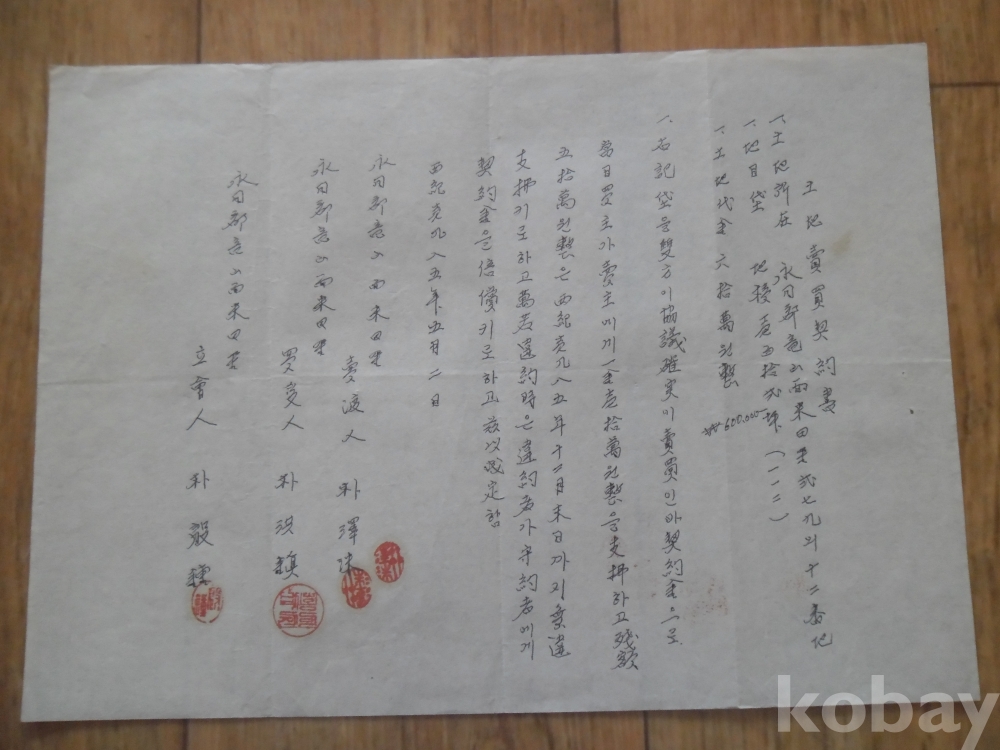 土地賣買契約書
一、土地所在 永日郡竜山面末田里 貳七九의十二番地
一、地目垈 地積 壱百五拾貳坪 (一一二)
一、土地代金 六拾萬원整
₩600,000-
一、右記垈을 雙方이 協議 確実이 賣買인 바 契約金으로
當日 買主가 賣主에게 一金壱拾萬원整을 支拂하고 残額
五拾萬원整은 西紀 壱九八五年 十二月末日까지 無違
支拂키로 하고 萬若 違約時은 違約者가 守約者에게
契約金을 倍償키로 하고 玆以 定함
西紀壱九八五年五月二日
永日郡 山面末田里
賣渡人 朴澤
永日郡 山面末田里
買受人 朴
永日郡 山面末田里
立會人 朴
kobay